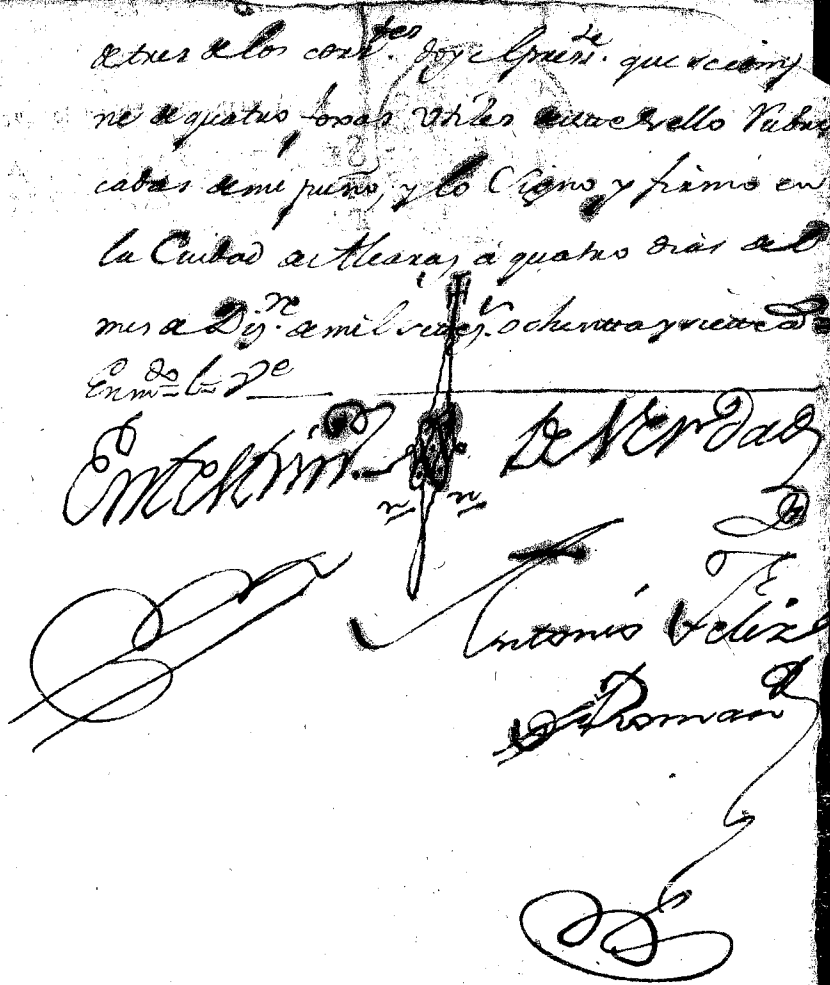 de tres de los corr.tes doy el pres.te que se com
ne de quatro foxas utiles de este sello Rubri
cadas de mi puño, y lo Signo y firmo en
la Ciudad de Alcaraz á quatro dias del
mes de Diz.re de mil setez.s ochentta y siette
Enm.do
En testim.o De Verdad
Antonio Feliz
Roman